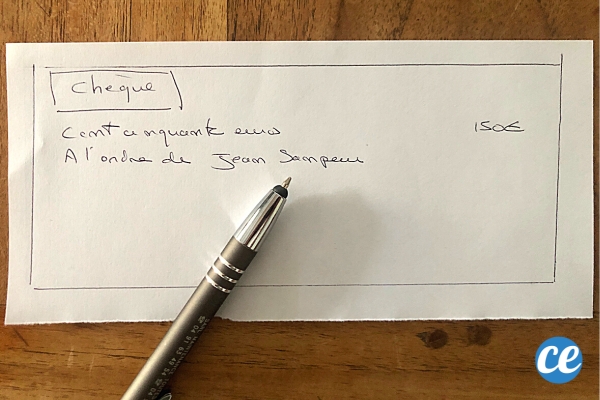 Chèque
Cent cinquante euros 150€
A l'ordre de Jean Sanpeur
ce